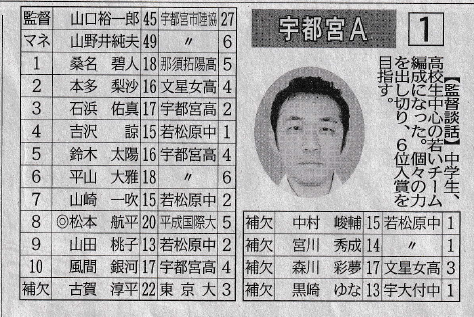 監督 山口裕一郎 45 宇都宮市陸協 27
マネ 山野井純夫 49 〃 6
1 桑名 碧人 18 那須拓陽高 5
2 本多 梨沙 16 文星女高 4
3 石浜 佑真 17 宇都宮高 2
4 吉沢 諒 15 若松原中 1
5 鈴木 太陽 16 宇都宮高 4
6 平山 大雅 18 〃 5
7 山崎 一吹 15 若松原中 2
8 ◎松本 航平 20 平成国際大 5
9 山田 桃子 13 若松原中 2
10 風間 銀河 17 宇都宮高 4
補欠 古賀 淳平 22 東京大 3
宇都宮A 1
【監督談話】中学生、
高校生中心の若いチーム
編成になった。個々の力
を出し切り、6位入賞を
目指す。
補欠 中村 峻輔 15 若松原中 1
補欠 宮川 秀成 14 〃 1
補欠 森川 彩夢 17 文星女高 3
補欠 黒崎 ゆな 13 宇大付中 1